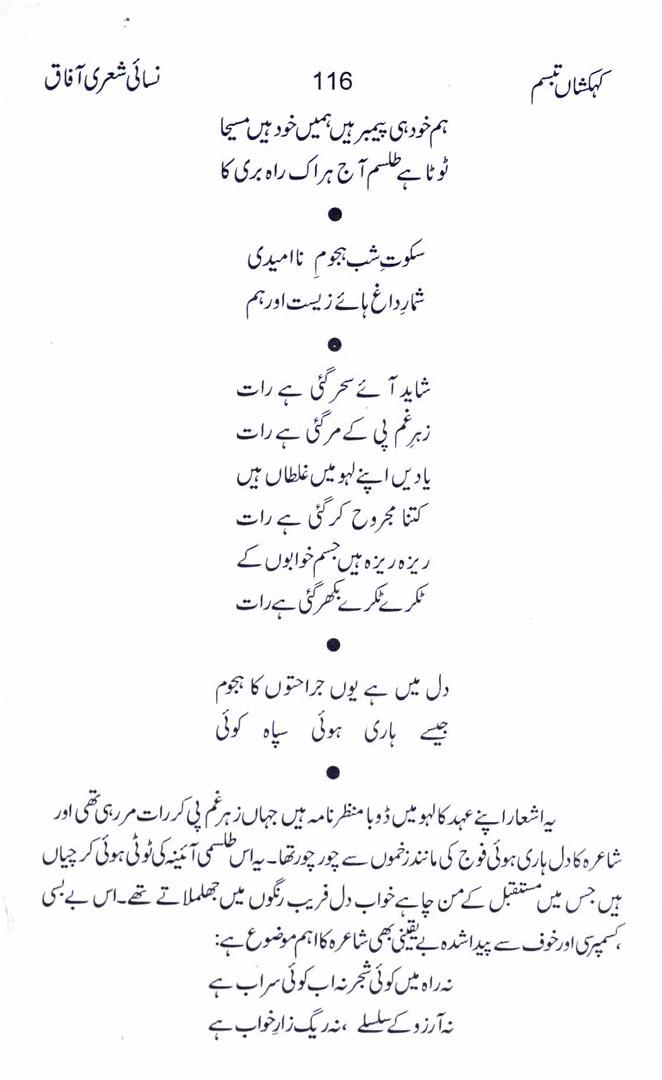 کہکشاں تبسم 116 نسائی شعری آفاق
ہم خود ہی پیمبر ہیں ہمیں خود ہیں مسیحا
ٹوٹا ہے طلسم آج ہر اک راہ بری کا
●
سکوتِ شب ہجومِ نا امیدی
شمارِ داغ ہائے زیست اور ہم
●
شاید آئے سحر گئی ہے رات
زہرِ غم پی کے مر گئی ہے رات
یادیں اپنے لہو میں غلطاں ہیں
کتنا مجروح کر گئی ہے رات
ریزہ ریزہ ہیں جسم خوابوں کے
ٹکرے ٹکرے بکھر گئی ہے رات
●
دل میں ہے یوں جراحتوں کا ہجوم
جیسے ہاری ہوئی سپاہ کوئی
●
یہ اشعار اپنے عہد کا لہو میں ڈوبا منظر نامہ ہیں جہاں زہرِ غم پی کر رات مر رہی تھی اور
شاعرہ کا دل ہاری ہوئی فوج کی مانند زخموں سے چور چور تھا۔ یہ اس طلسمی آئینہ کی ٹوٹی ہوئی کرچیاں
ہیں جس میں مستقبل کے من چاہے خواب دل فریب رنگوں میں جھلملاتے تھے۔ اس بے بسی
،کسمپرسی اور خوف سے پیدا شدہ بے یقینی بھی شاعرہ کا اہم موضوع ہے:
نہ راہ میں کوئی شجر نہ اب کوئی سراب ہے
نہ آرزو کے سلسلے ، نہ ریگ زارِ خواب ہے